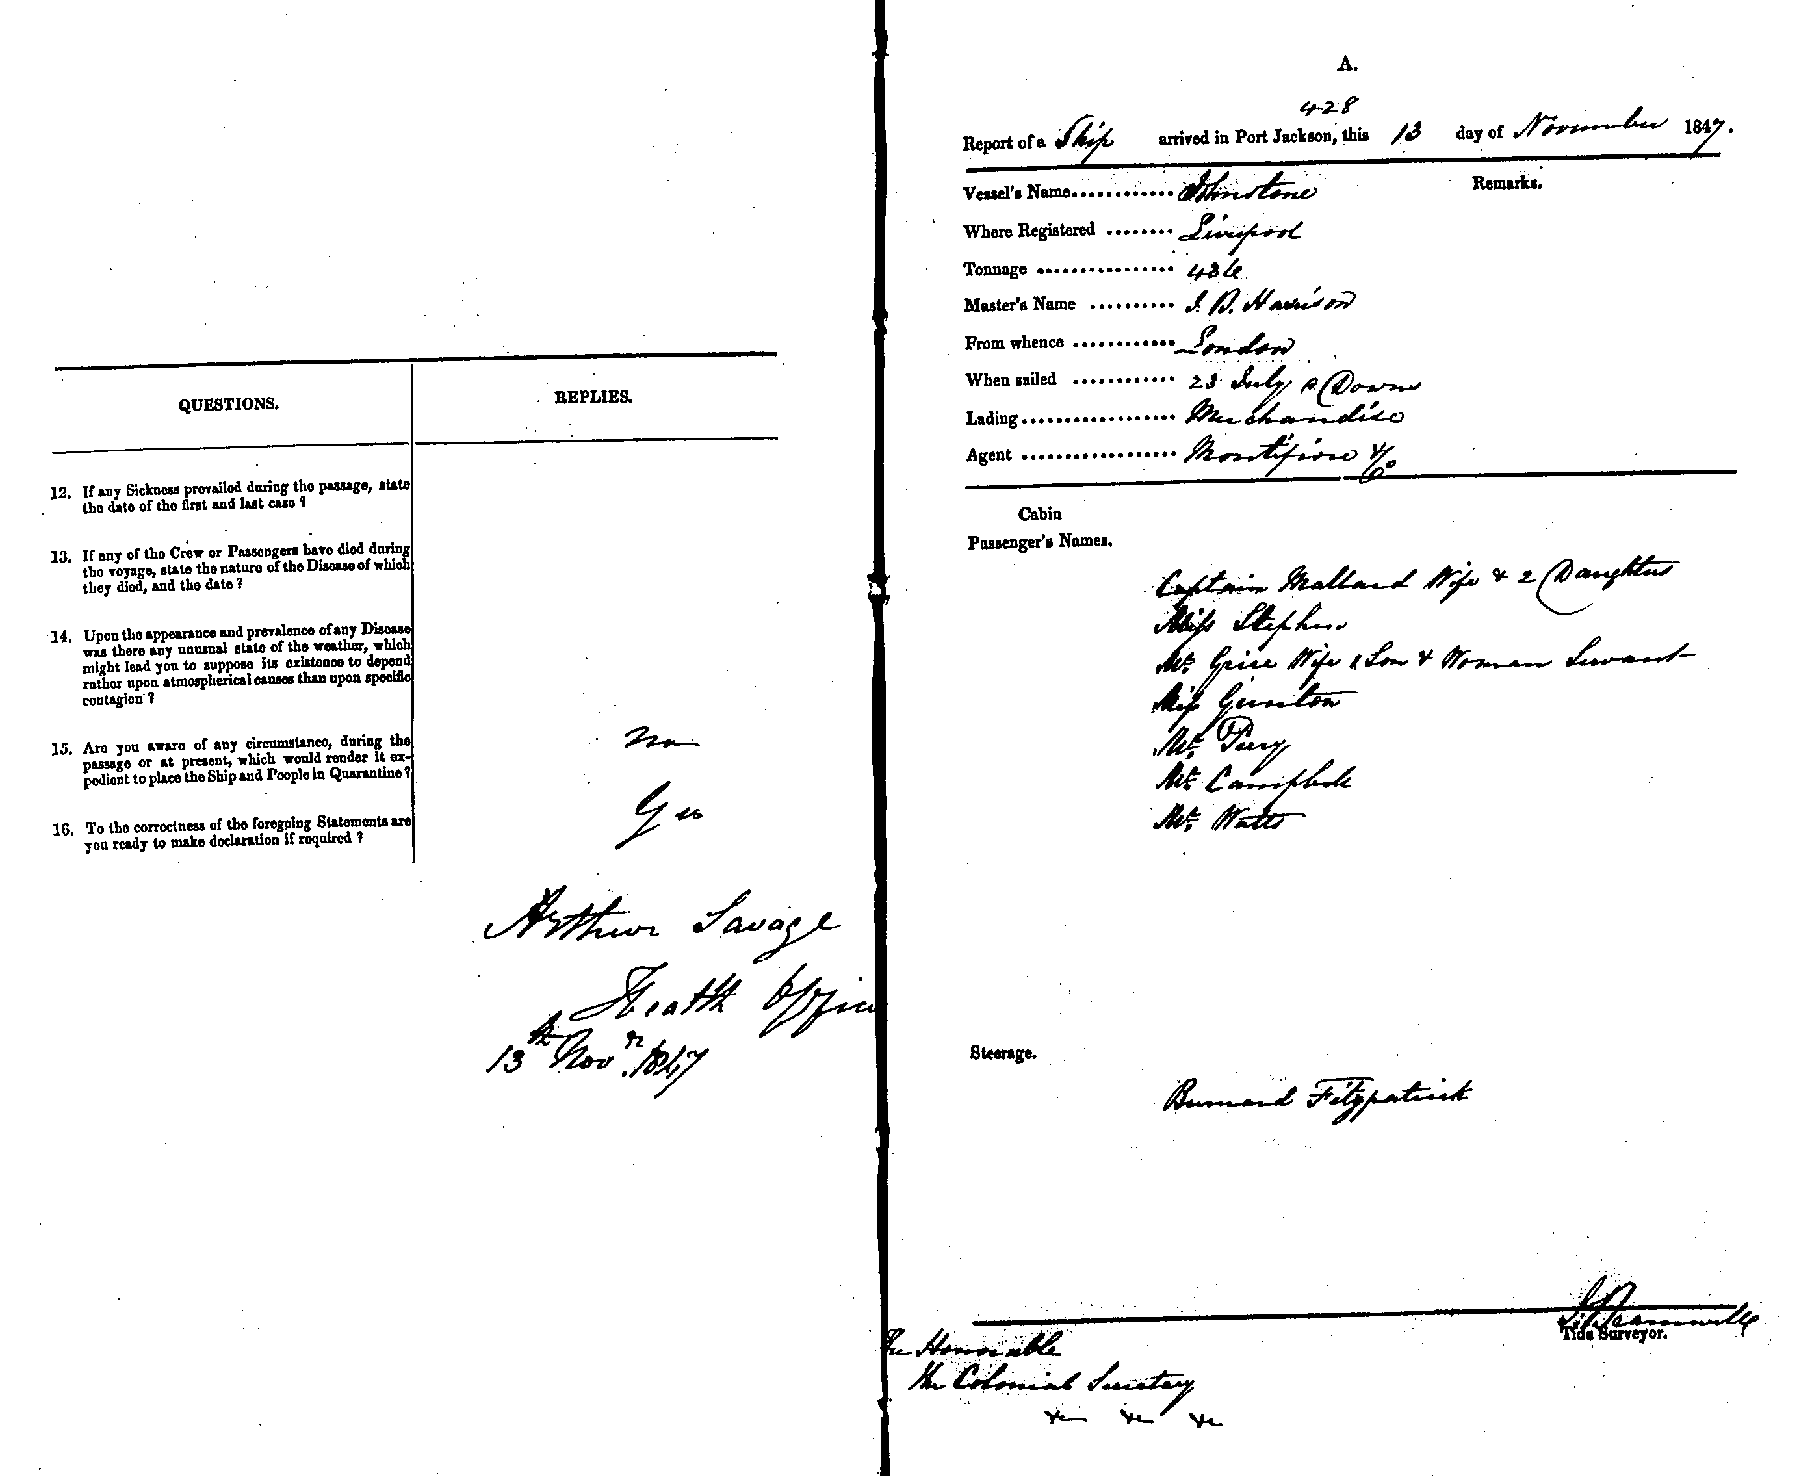 QUESTIONS.
REPLIES.
12. If any Sickness prevailed during the passage, state
the date of the first and last case ?
13. If any of the Crew or Passengers have died during
the voyage, state the nature of the Disease of which
they died, and the date ?
14. Upon the appearance and prevalence of any Disease
was there any unusual state of the weather, which
might lead you to suppose its existence to depend
rather upon atmospherical causes than upon specific
contagion ?
15. Are you aware of any circumstance, during the
passage or at present, which would render it ex-
pedient to place the Ship and People in Quarantine ?
No
16. To the correctness of the foregoing Statements are
you ready to make declaration if required ?
Yes
Arthur Savage
Health Office
13th Novr. 1847
A.
428
Report of a Ship arrived in Port Jackson, this 13 day of November 1847.
Remarks.
Vessel's Name............ Johnstone
Where Registered ........ Liverpool
Tonnage ................ 436
Master's Name .......... J. B. Harrison
From whence ............ London
When sailed ............ 23 July Downs
Lading.................. Merchandise
Agent .................. Montifiore & Co
Cabin
Passenger's Names.
Captain Mallard Wife & 2 Daughters
Miss Stephen
Mr. Grice Wife & Son & Woman Servant
Miss Gunston
Mr. Perry
Mr. Campbell
Mr. Watts
Steerage.
Bernard Fitzpatrick
Tide Surveyor.
The Honorable
the Colonial Secretary
&c &c &c